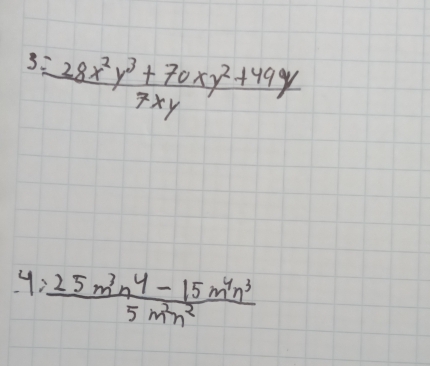 3= 28x²y³ + 70xy² + 49y
7xy
4= 25m³n⁴ - 15m⁴n³
5m²n²